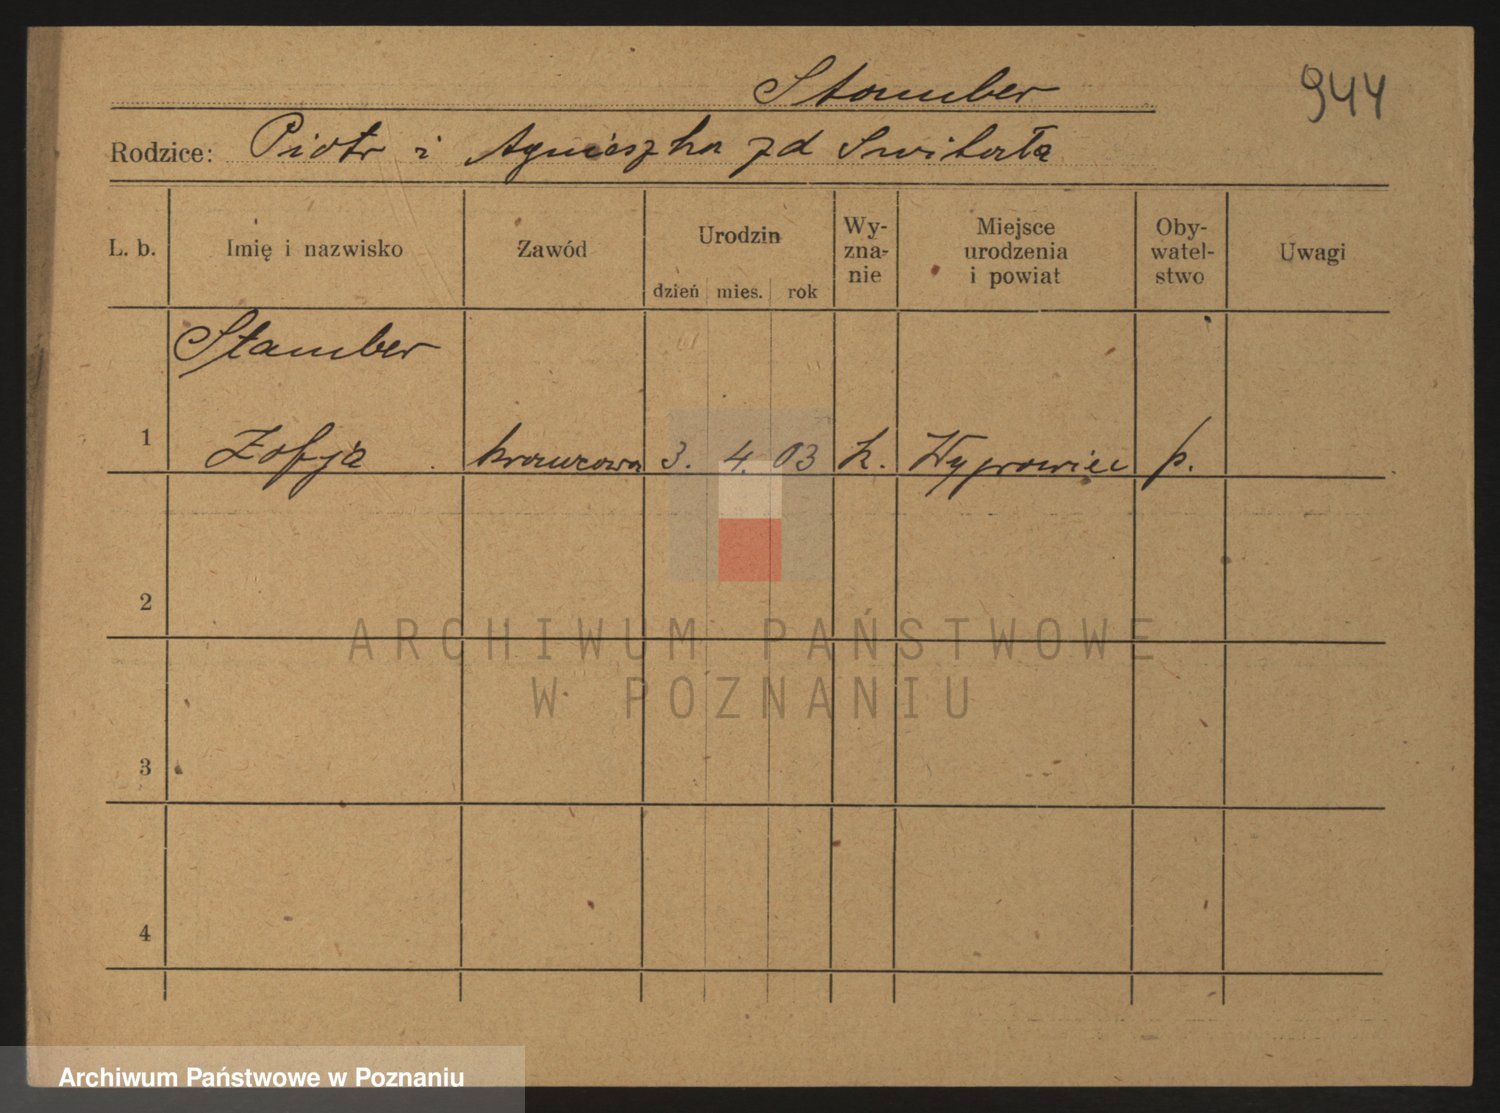 Stamber
944
Rodzice: Piotr i Agnieszka zd
L. b.
Imię i nazwisko
Zawód
Urodzin
dzień mies. rok
Wy-
zna-
nie
Miejsce
urodzenia
i powiat
Oby-
watel-
stwo
Uwagi
Stamber
1 Zofja krawcowa 3. 4. 03 k. p.
2
ARCHIWUM PAŃSTWOWE
W POZNANIU
3
4
Archiwum Państwowe w Poznaniu